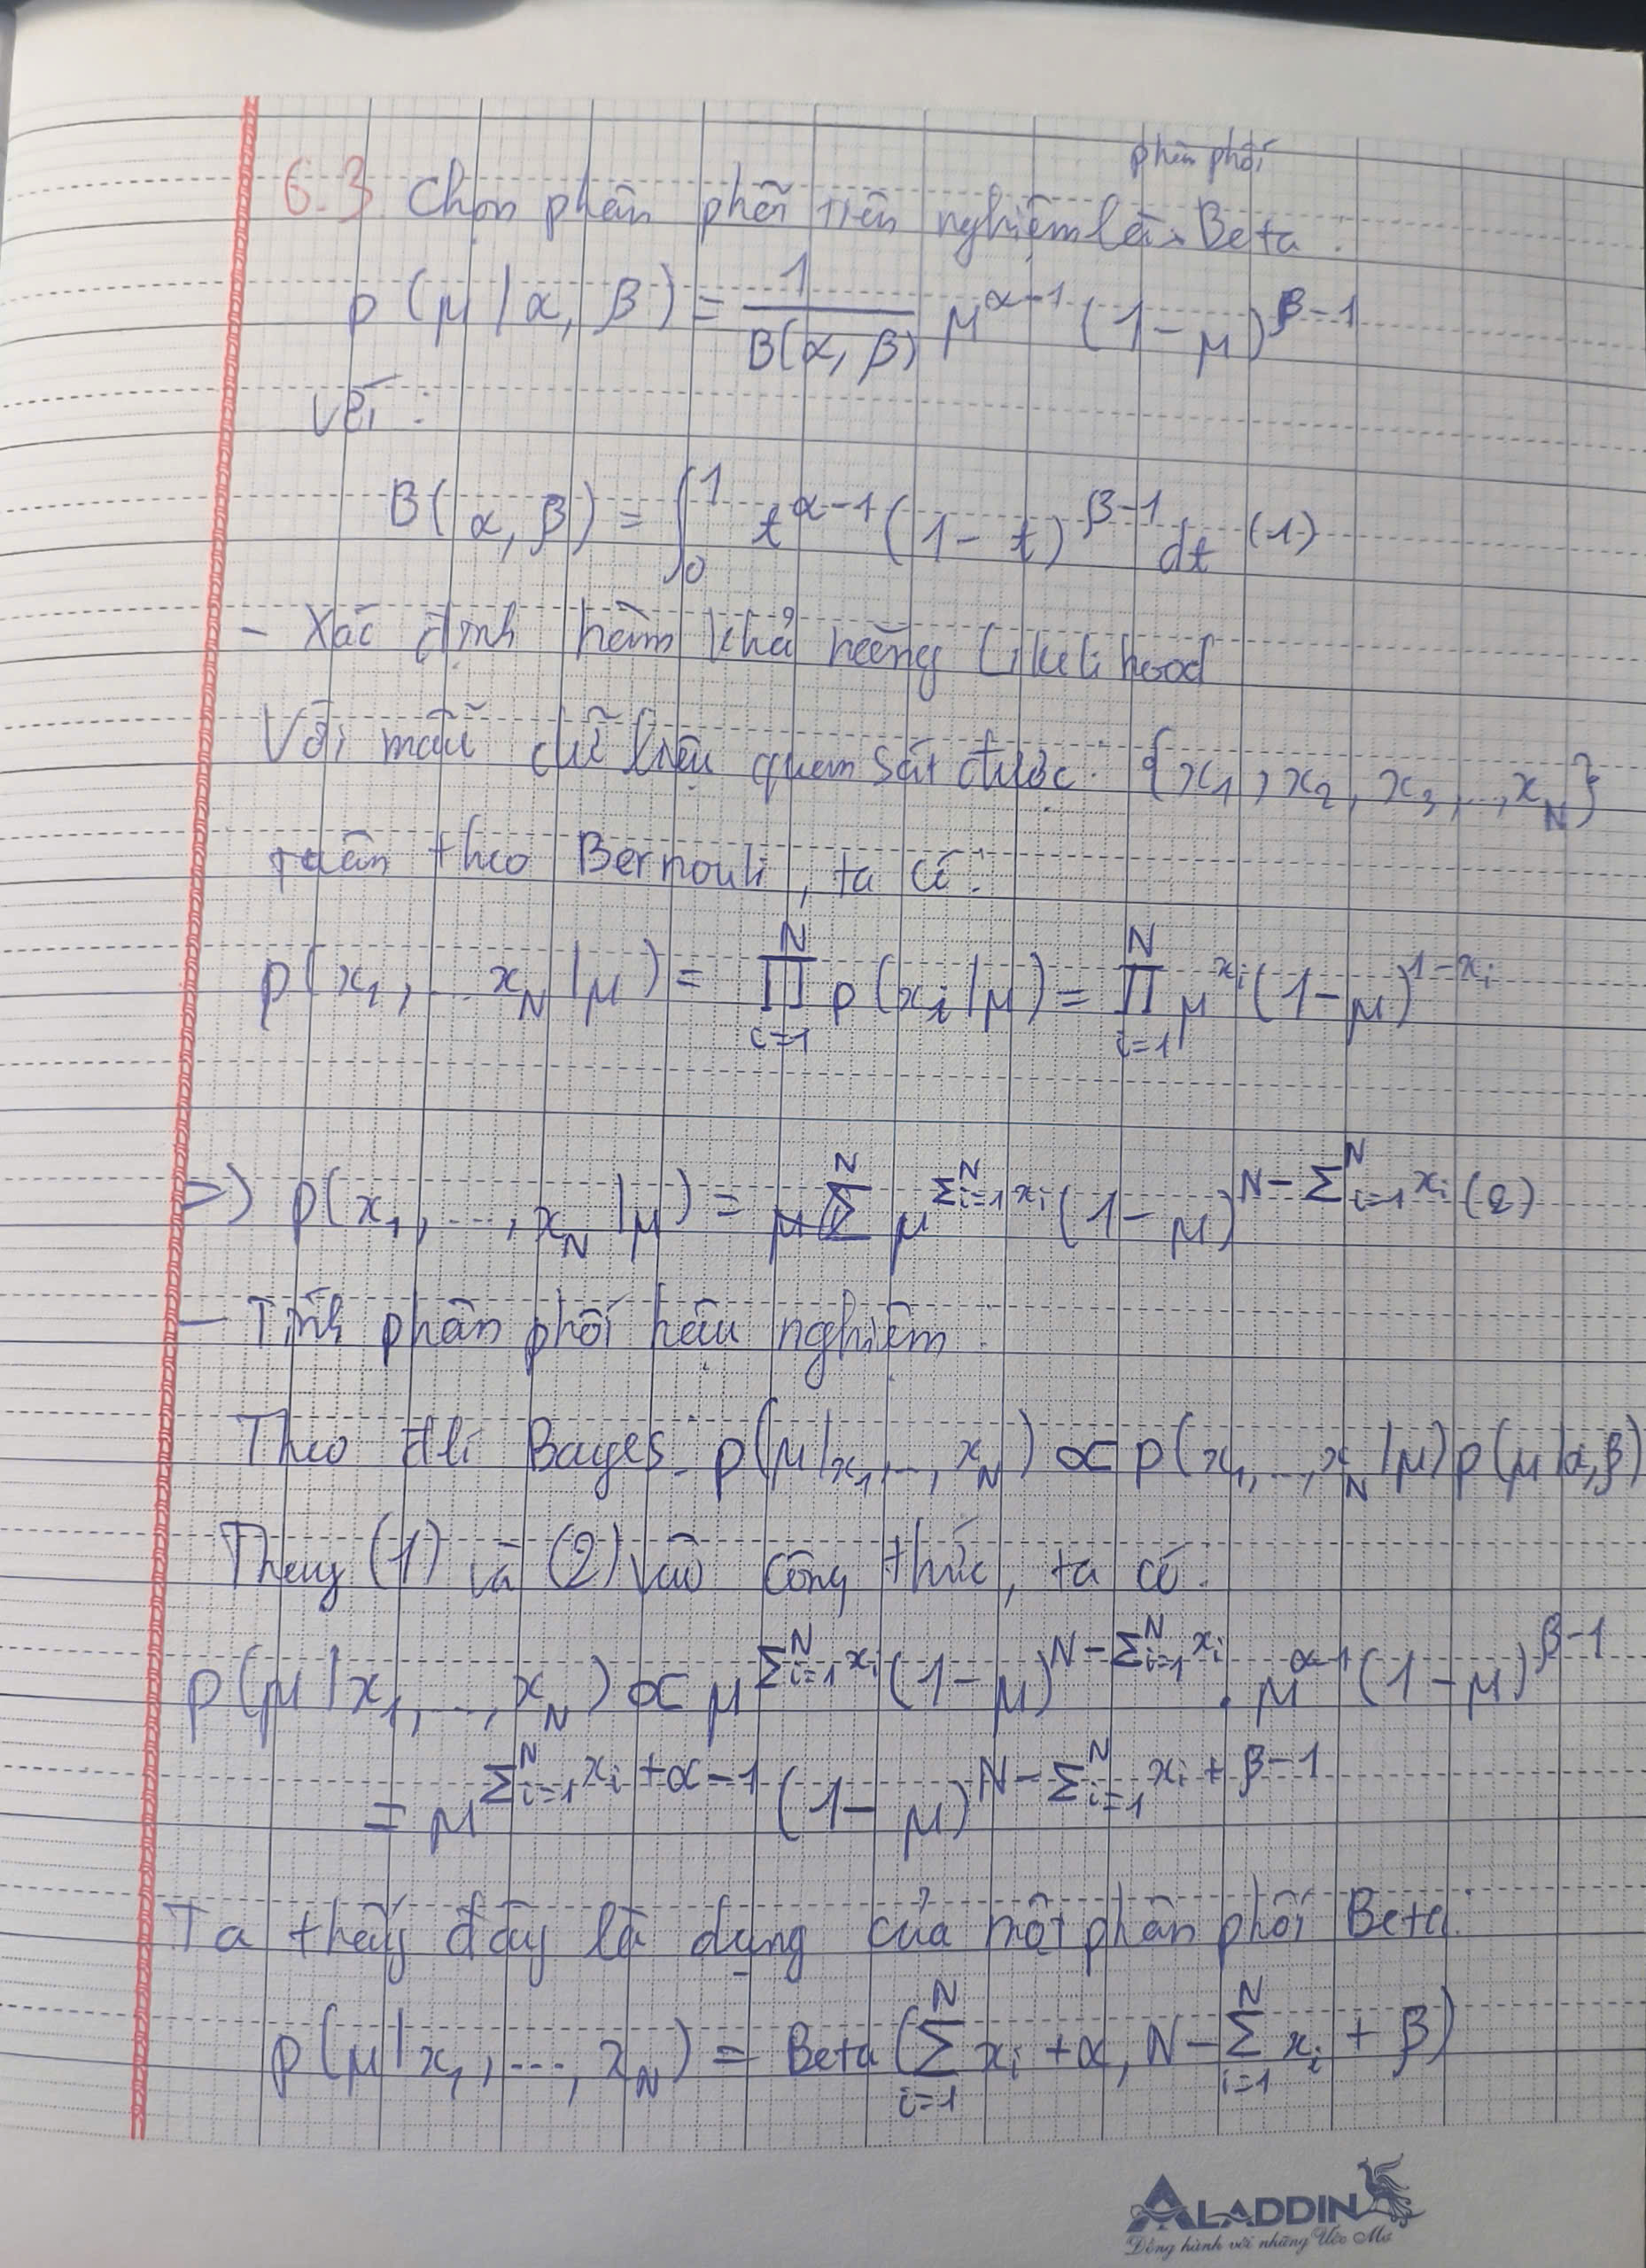 phân phối
6.3 Chọn phân phối tiên nghiệm là Beta :
p(μ|α, β) = 1/B(α, β) μ^(α-1) (1-μ)^(β-1)
với :
B(α, β) = ∫₀¹ t^(α-1) (1-t)^(β-1) dt (1)
- Xác định hàm khả năng Likelihood
Với mẫu dữ liệu quan sát được: {x₁, x₂, x₃, ..., x_N}
tuân theo Bernouli, ta có:
p(x₁, ... x_N |μ) = ∏_{i=1}^N p(x_i|μ) = ∏_{i=1}^N μ^(x_i) (1-μ)^(1-x_i)
=> p(x₁, ..., x_N |μ) = μ^(Σ_{i=1}^N x_i) (1-μ)^(N-Σ_{i=1}^N x_i) (2)
- Tính phân phối hậu nghiệm:
Theo đlí Bayes: p(μ|x₁, ..., x_N) ∝ p(x₁, ..., x_N |μ) p(μ|α,β)
Thay (1) và (2) vào công thức, ta có:
p(μ|x₁, ..., x_N) ∝ μ^(Σ_{i=1}^N x_i) (1-μ)^(N-Σ_{i=1}^N x_i) . μ^(α-1) (1-μ)^(β-1)
= μ^(Σ_{i=1}^N x_i + α-1) (1-μ)^(N-Σ_{i=1}^N x_i + β-1)
Ta thấy đây là dạng của một phân phối Beta:
p(μ|x₁, ..., x_N) = Beta (Σ_{i=1}^N x_i + α, N - Σ_{i=1}^N x_i + β)
ALADDIN
Đồng hành với những Ước Mơ